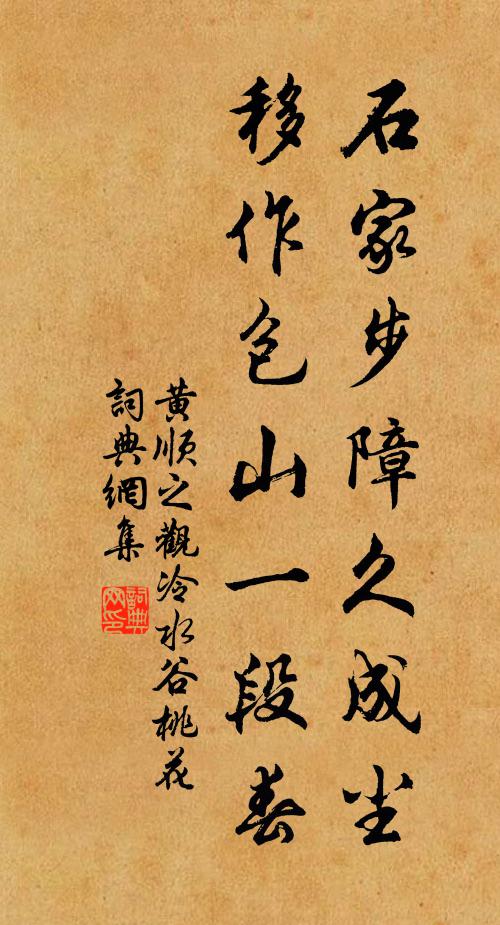 石家步障久成尘
移作包山一段春
黄順之觀冷水谷桃花
詞典網集
詞典网印